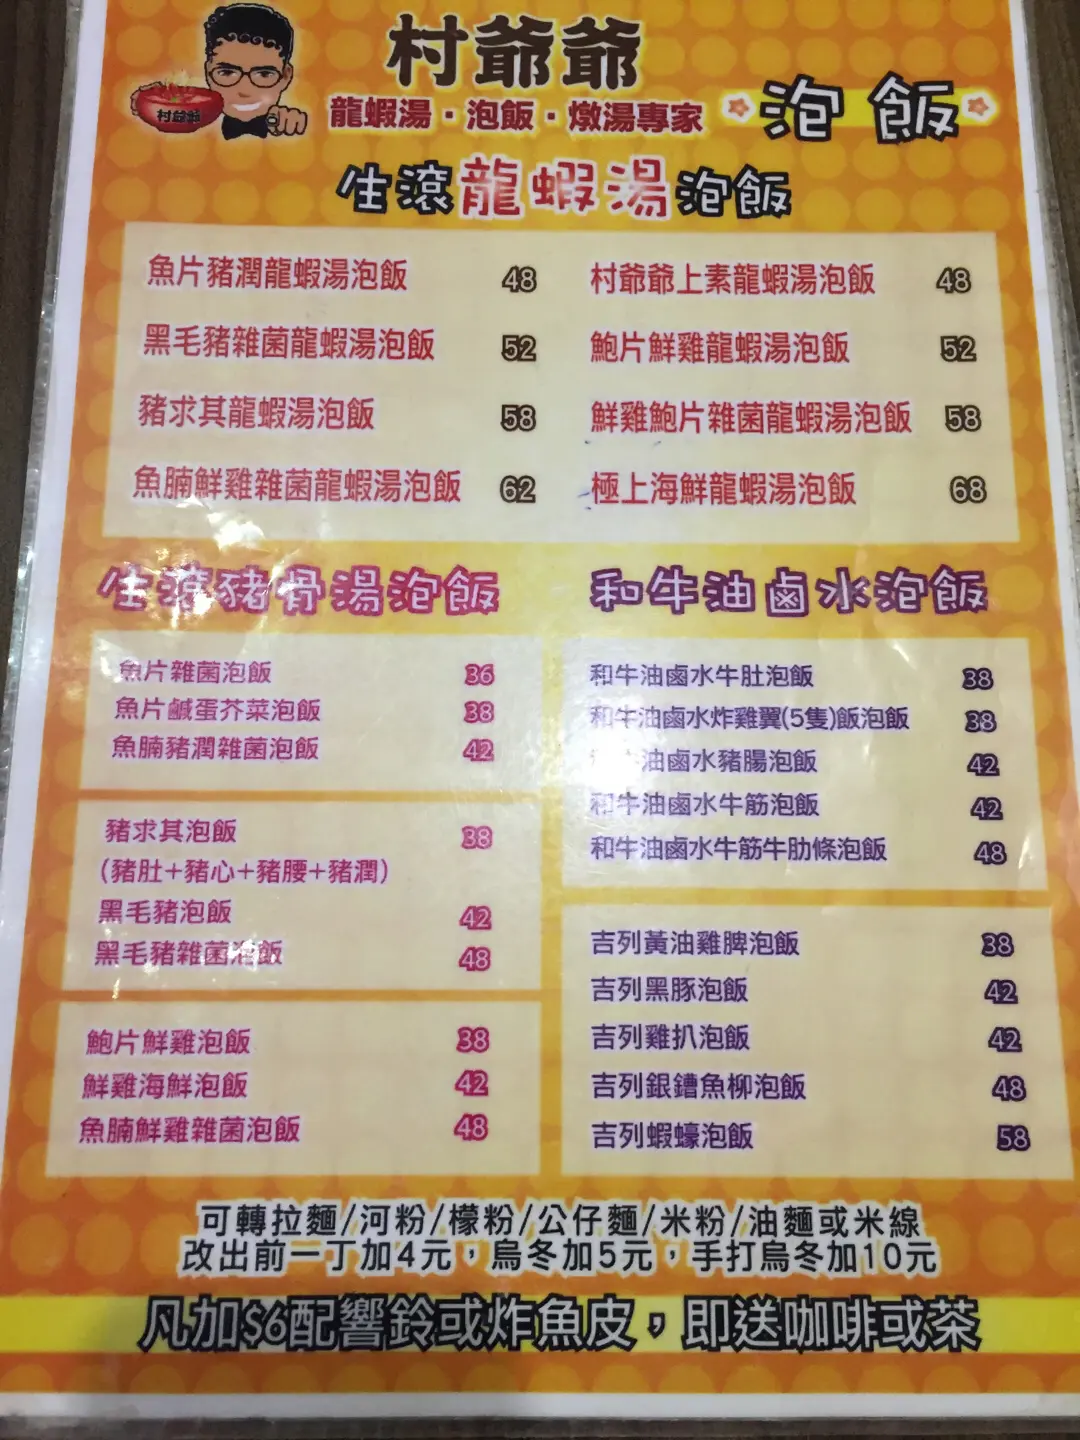 村爺爺
龍蝦湯·泡飯·燉湯專家
村爺爺
泡飯
生滾龍蝦湯泡飯
魚片豬潤龍蝦湯泡飯 48
黑毛豬雜菌龍蝦湯泡飯 52
豬求其龍蝦湯泡飯 58
魚腩鮮雞雜菌龍蝦湯泡飯 62
村爺爺上素龍蝦湯泡飯 48
鮑片鮮雞龍蝦湯泡飯 52
鮮雞鮑片雜菌龍蝦湯泡飯 58
極上海鮮龍蝦湯泡飯 68
生滾豬骨湯泡飯
魚片雜菌泡飯 36
魚片鹹蛋芥菜泡飯 38
魚腩豬潤雜菌泡飯 42
豬求其泡飯 38
(豬肚+豬心+豬腰+豬潤)
黑毛豬泡飯 42
黑毛豬雜菌泡飯 48
鮑片鮮雞泡飯 38
鮮雞海鮮泡飯 42
魚腩鮮雞雜菌泡飯 48
和牛油鹵水泡飯
和牛油鹵水牛肚泡飯 38
和牛油鹵水炸雞翼(5隻)飯泡飯 38
油鹵水豬腸泡飯 42
和牛油鹵水牛筋泡飯 42
和牛油鹵水牛筋牛肋條泡飯 48
吉列黃油雞脾泡飯 38
吉列黑豚泡飯 42
吉列雞扒泡飯 42
吉列銀鱈魚柳泡飯 48
吉列蝦蠔泡飯 58
可轉拉麵/河粉/檬粉/公仔麵/米粉/油麵或米線
改出前一丁加4元，烏冬加5元，手打烏冬加10元
凡加$6配響鈴或炸魚皮，即送咖啡或茶